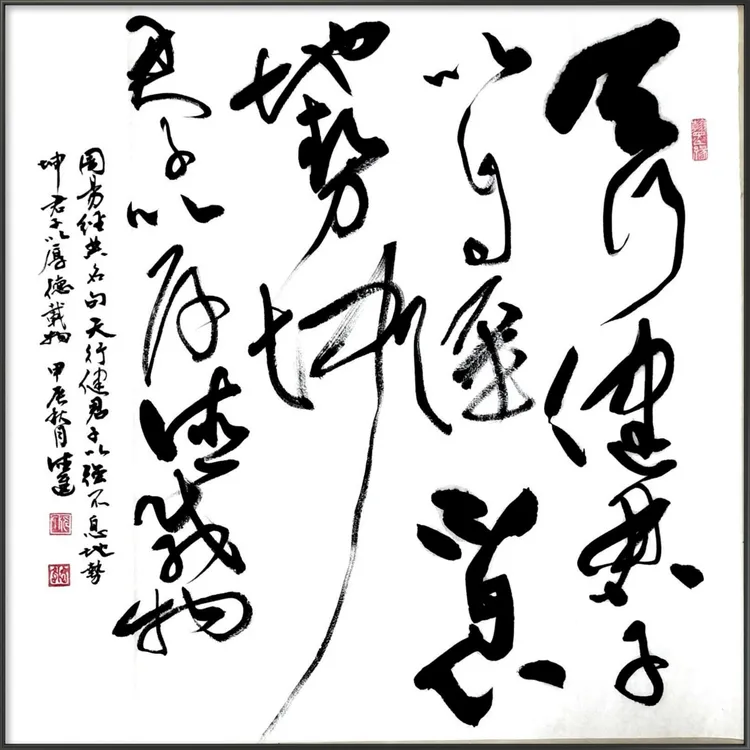 天行健君子
以自强不息
地势坤
君子以厚德载物
周易经典名句天行健君子以强不息地势
坤君子以厚德载物 甲辰秋月